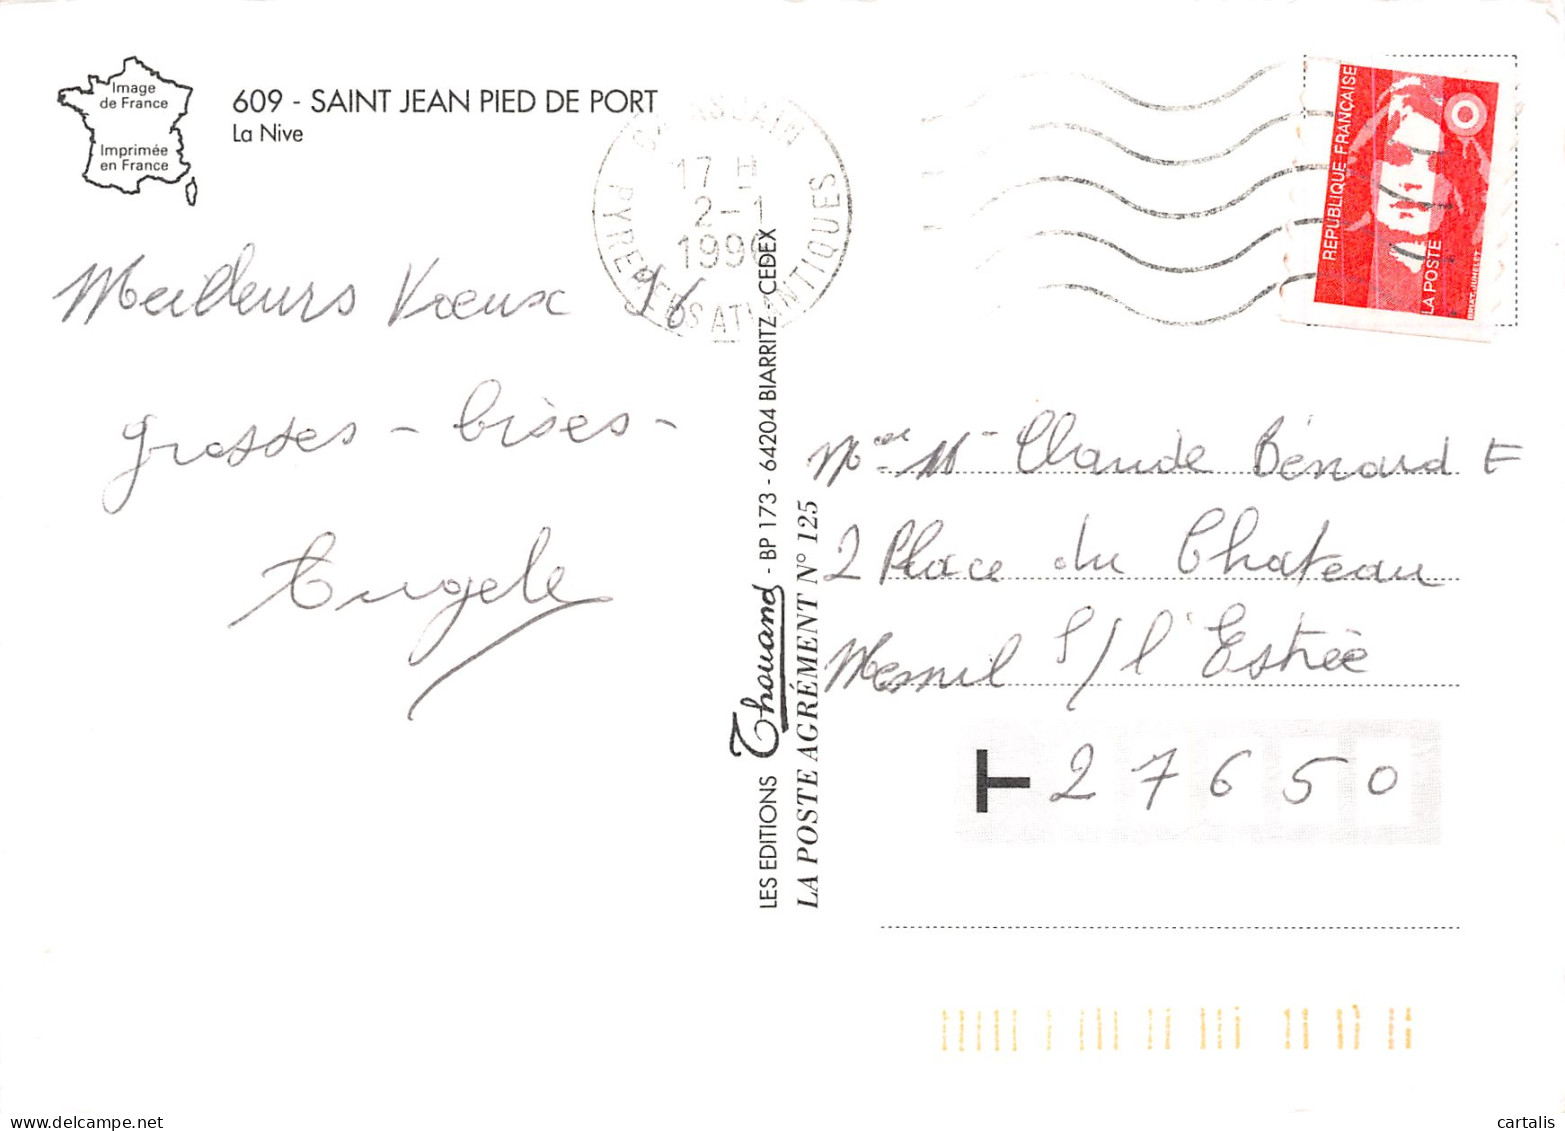 Image
de France
Imprimée
en France
609 - SAINT JEAN PIED DE PORT
La Nive
17 H
2-1
1996
PYRENEES ATLANTIQUES
REPUBLIQUE FRANÇAISE
LA POSTE
Meilleurs Vœux 96
grosses - bises -
Angele
LES EDITIONS Thouand - BP 173 - 64204 BIARRITZ - CEDEX
LA POSTE AGRÉMENT N° 125
Mme M Claude Bénard
2 Place du Chateau
Mesnil S/ l'Estrée
T 27650
cartalis
delcampe.net